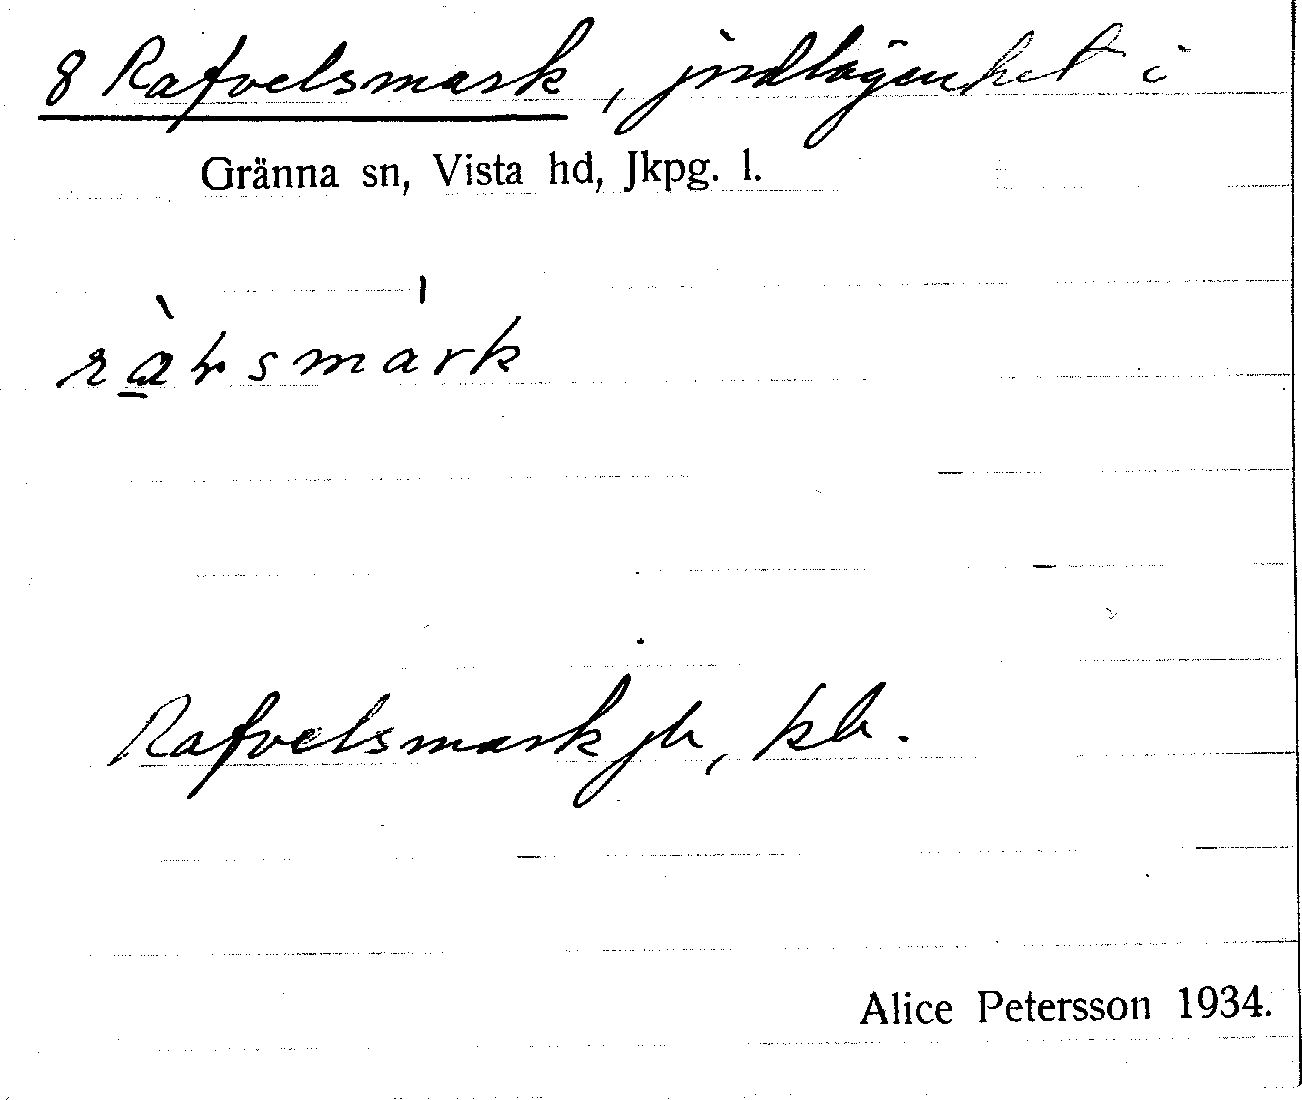 8 Rafvelsmark, jordlägenhet i
Gränna sn, Vista hd, Jkpg. l.
ràvsmárk
Rafvelsmark jb, kb.
Alice Petersson 1934.